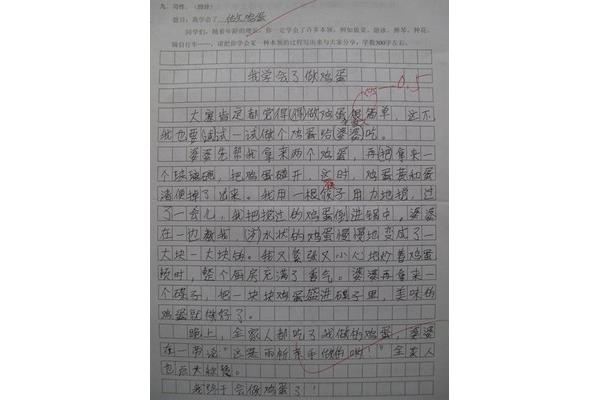 九、写作。(30分)
题目:我学会了 做鸡蛋
同学们,随着年龄的增长,你一定学会了许多本领,例如做菜、游泳、弹琴、种花、
骑自行车……,请把你学会某一种本领的过程写出来与大家分享,字数300字左右。
我学会了做鸡蛋
-0.5
大家肯定都觉得得做鸡蛋很简单,这不
我也要试一试做个鸡蛋给婆婆吃。
婆婆先帮我拿来两个鸡蛋,再把拿来一
个玻璃碗,把鸡蛋磕开,这时,鸡蛋黄和蛋
清便掉了出来。我用一根筷子用力地搅,过
了一会儿,我把搅过的鸡蛋倒进锅中,婆婆
在一边教我,水状的鸡蛋慢慢地变成了一
大块一大块的。我又紧张又小心地炒着鸡蛋
顿时,整个厨房充满了香气。婆婆再拿来一
个碟子,把一块块鸡蛋盛进碟子里,美味的
鸡蛋就做好了。
晚上,全家人都吃了我做的鸡蛋,婆婆
在一旁说“这是雨析亲手做的哟!”全家人
也点大称赞。
我终于会做鸡蛋了!